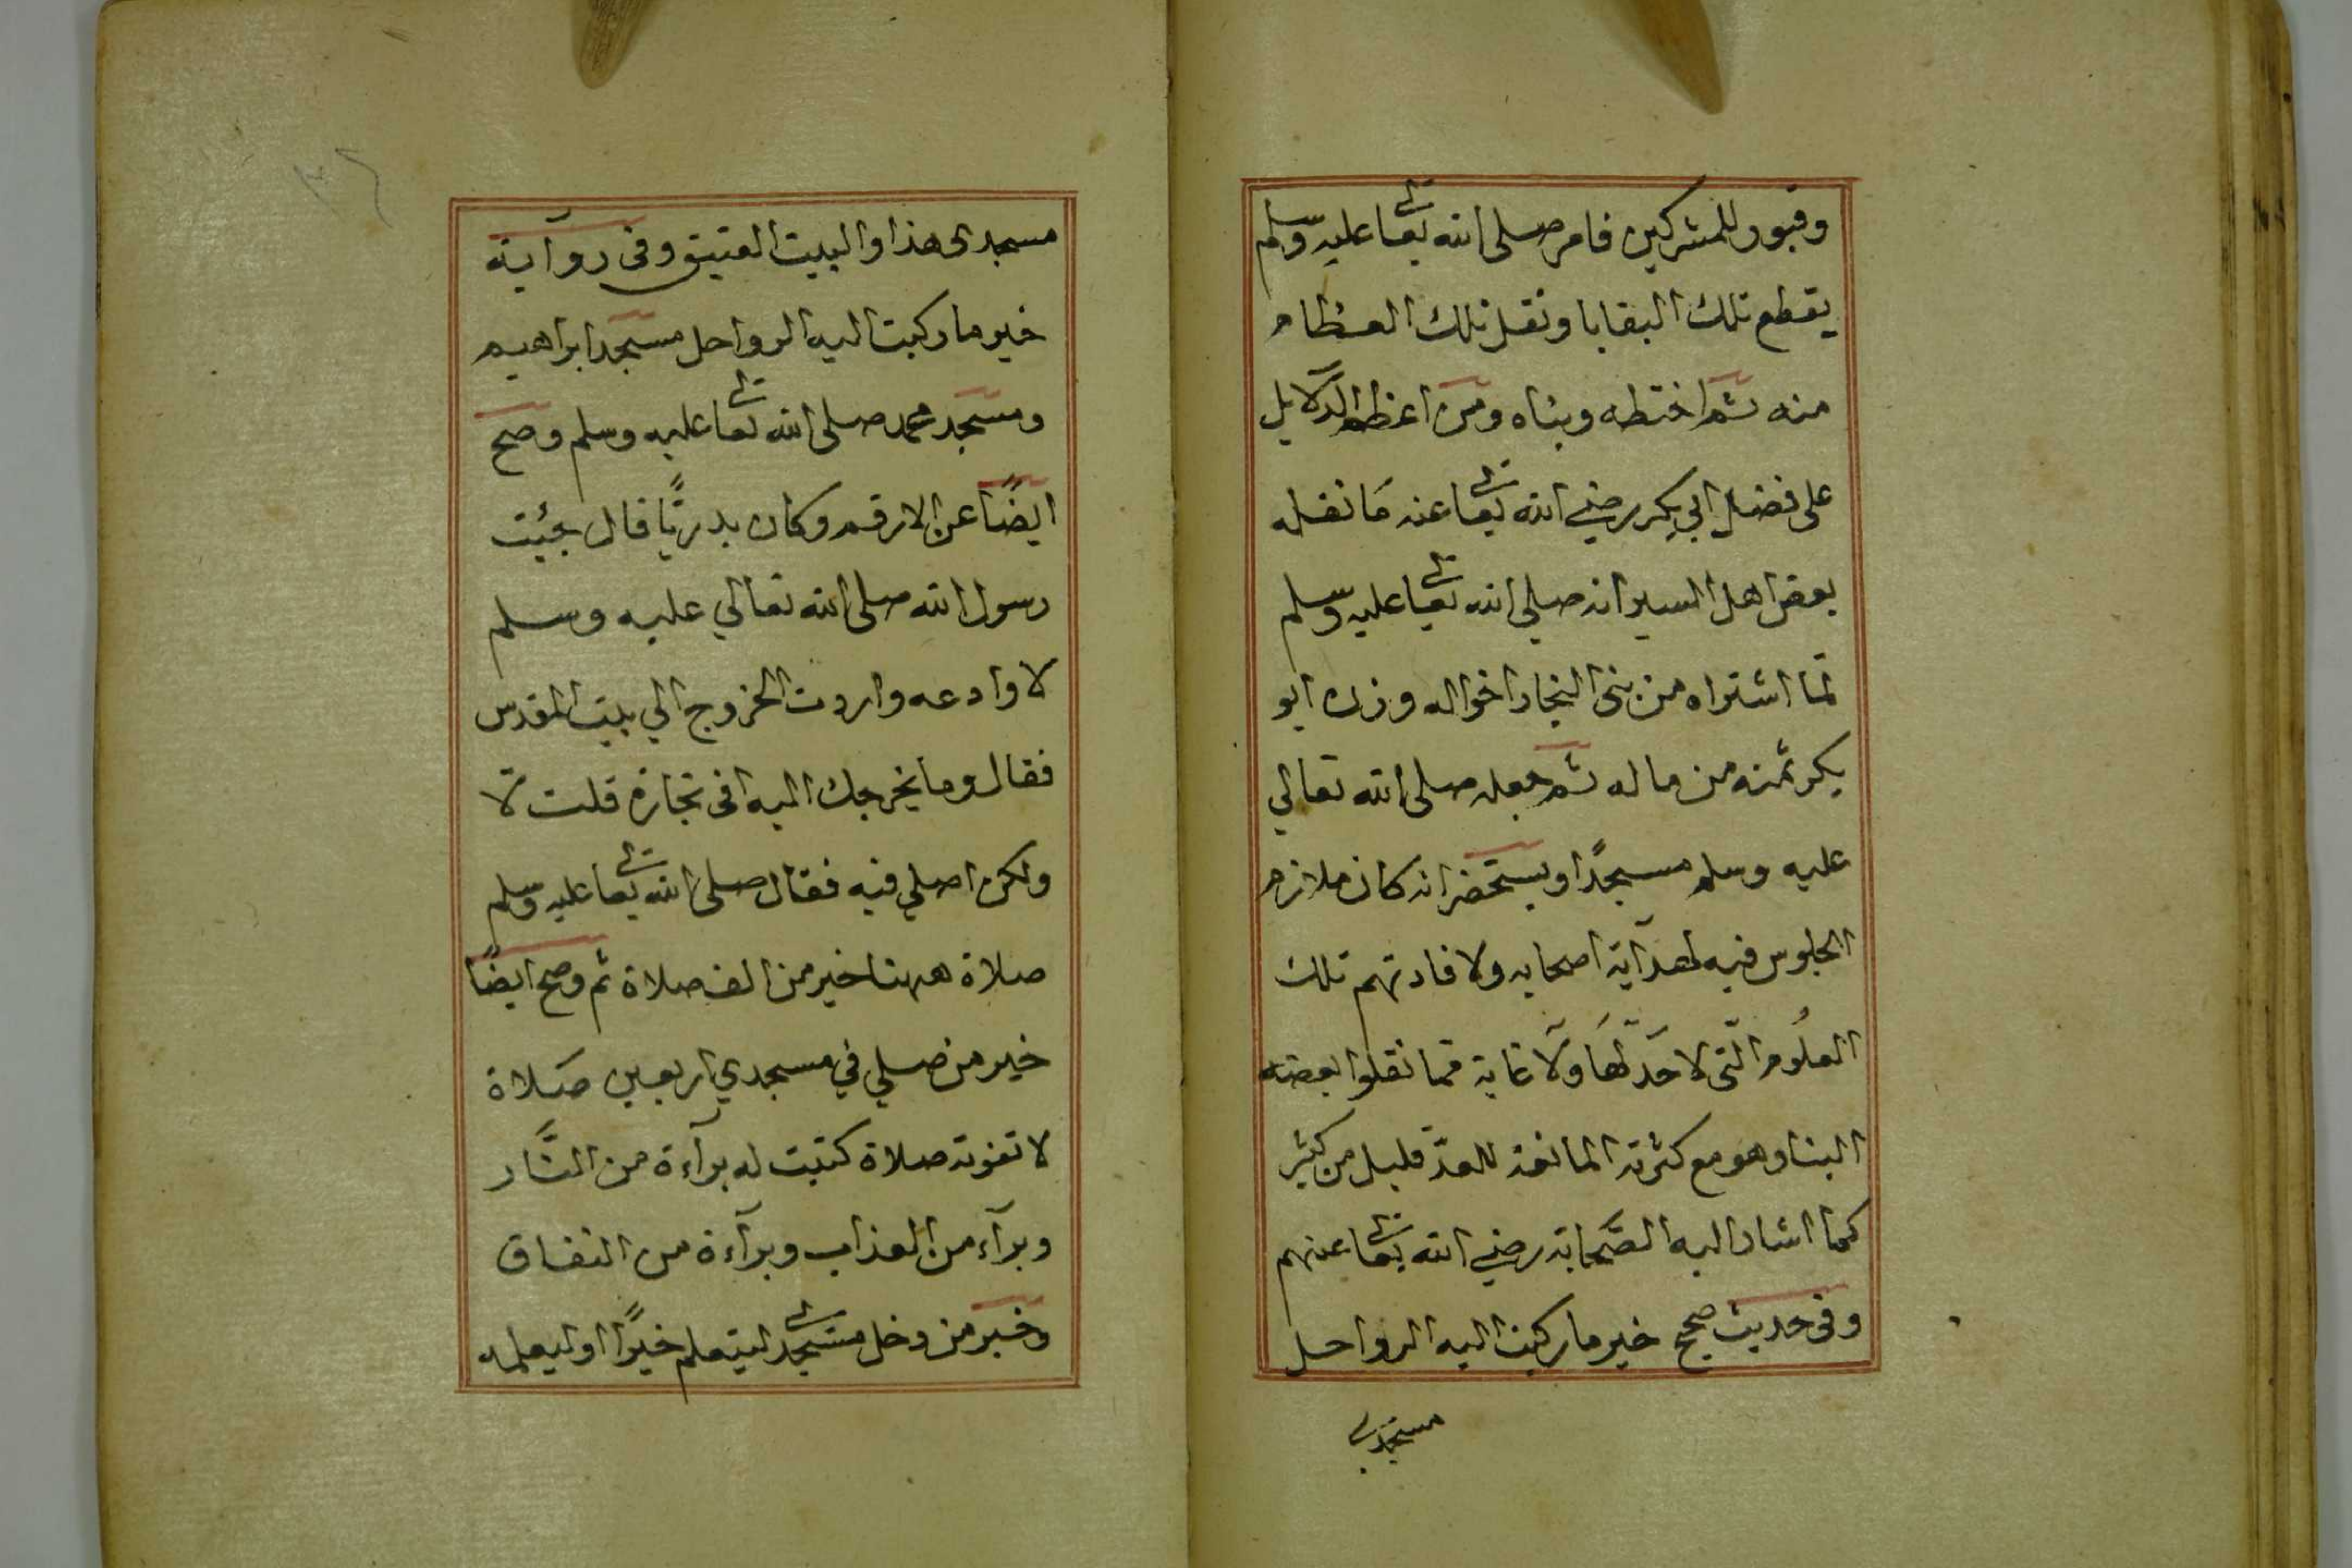 وقبور للمشركين فامر صلى الله تعالى عليه وسلم
يقطع تلك البقايا ونقل تلك العظام
منه ثم اختطه وبناه ومن اعظم الدلايل
على فضل ابي بكر رضي الله تعالى عنه مَا نقله
بعض اهل السير انه صلى الله تعالى عليه وسلم
لما اشتراه من بنى النجار اخواله وزن ابو
بكر ثمنه من ماله ثم جعله صلى الله تعالي
عليه وسلم مسجدًا ويستحضر انه كان ملازم
الجلوس فيه لهدآية اصحابه ولافادتهم تلك
العلُوم الّتى لا حَدّ لهَا وَلَا غاية فما نقلوا بعضه
الينا وهو مع كثرته المانعة للعدّ قليل من كثير
كما اشار اليه الصَّحابة رضي الله تعالى عنهم
وفى حديث صحيح خير ما ركبت اليه الرواحل
مسجدي
مسجدى هذا والبيت العتيق وفى روآية
خير ما ركبت اليه الرواحل مسجد ابراهيم
ومسجد محمد صلى الله تعالى عليه وسلم وصح
ايضًا عن الارقم وكان بدريًّا قال جئت
رسول الله صلى الله تعالي عليه وسلم
لاوادعه واردت الخروج الي بيت المقدس
فقال وما يخرجك اليه افى تجارة قلت لا
ولكن اصلي فيه فقال صلى الله تعالى عليه وسلم
صلاة ههنا خير من الف صلاة ثم وصح ايضًا
خير من صلي في مسجدي اربعين صَلاة
لا تفوته صلاة كتبت له برآءة من النَّار
وبرآء من العذاب وبرآءة من النفاق
وخبر من دخل مسجدى ليتعلم خيرًا او ليعلمه